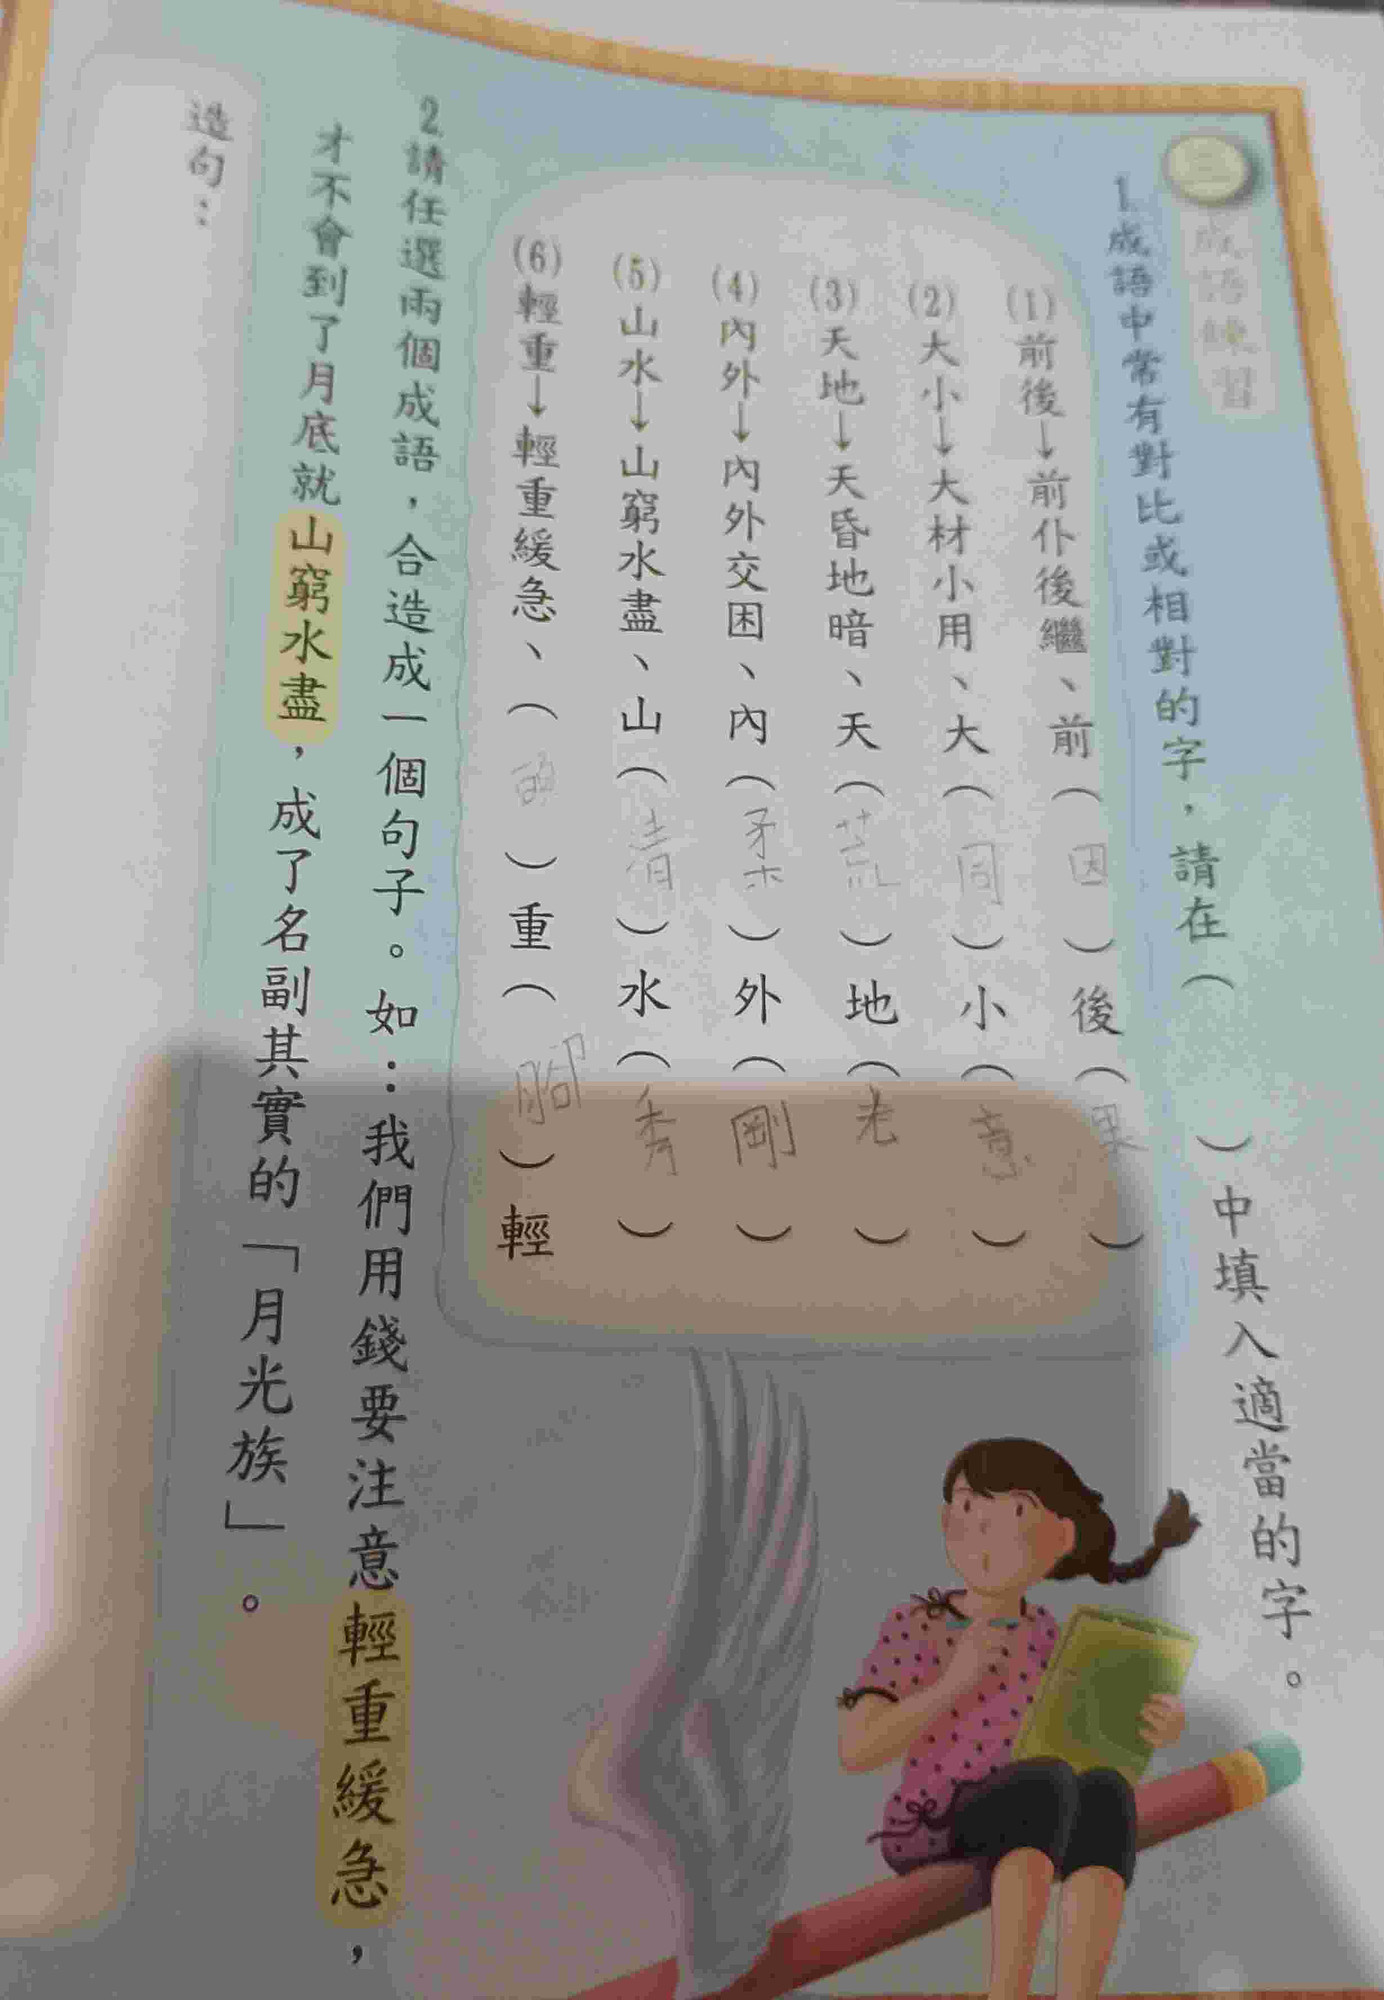 三
成語練習
1.成語中常有對比或相對的字，請在（　）中填入適當的字。
(1)前後→前仆後繼、前（因）後（果）
(2)大小→大材小用、大（同）小（意）
(3)天地→天昏地暗、天（荒）地（老）
(4)內外→內外交困、內（柔）外（剛）
(5)山水→山窮水盡、山（清）水（秀）
(6)輕重→輕重緩急、（頭）重（腳）輕
2.請任選兩個成語，合造成一個句子。如：我們用錢要注意輕重緩急，
才不會到了月底就山窮水盡，成了名副其實的「月光族」。
造句：